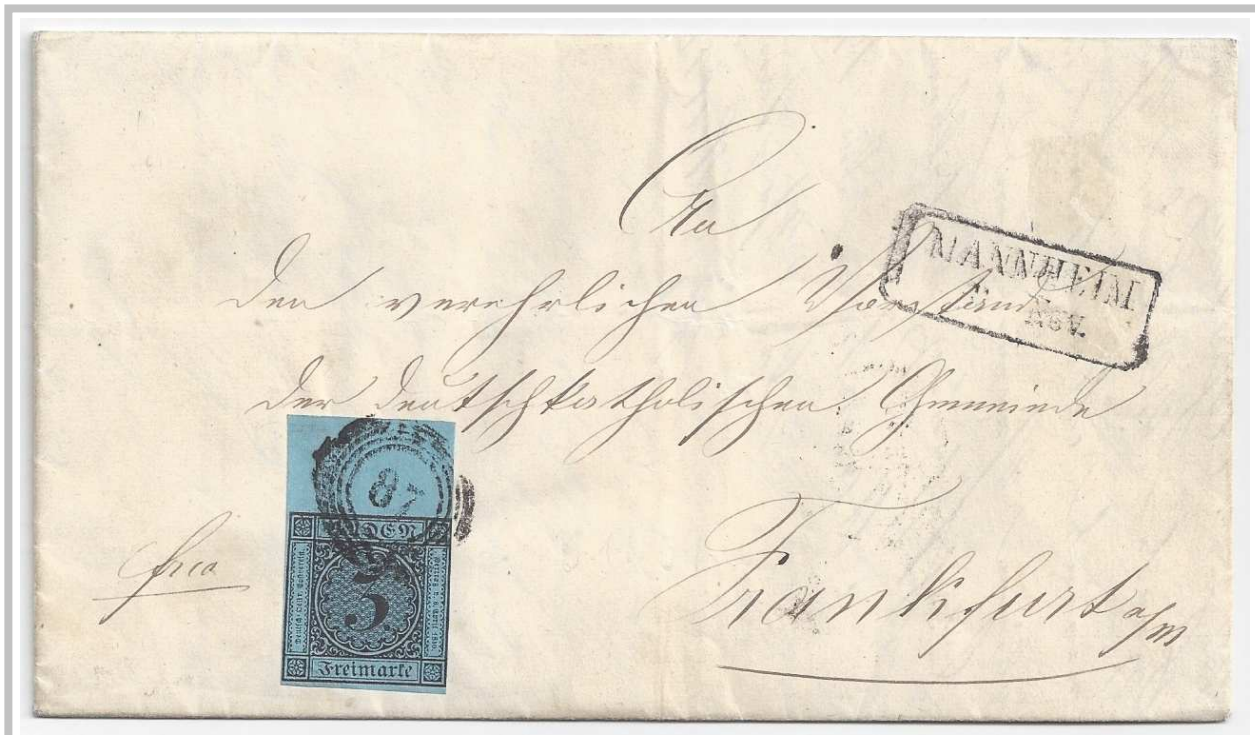 An
den verehrlichen Vorstand
der deutschkatholischen Gemeinde
Frankfurt a/m
frco
MANNHEIM
NOV.
87
BADEN
3
Freimarke